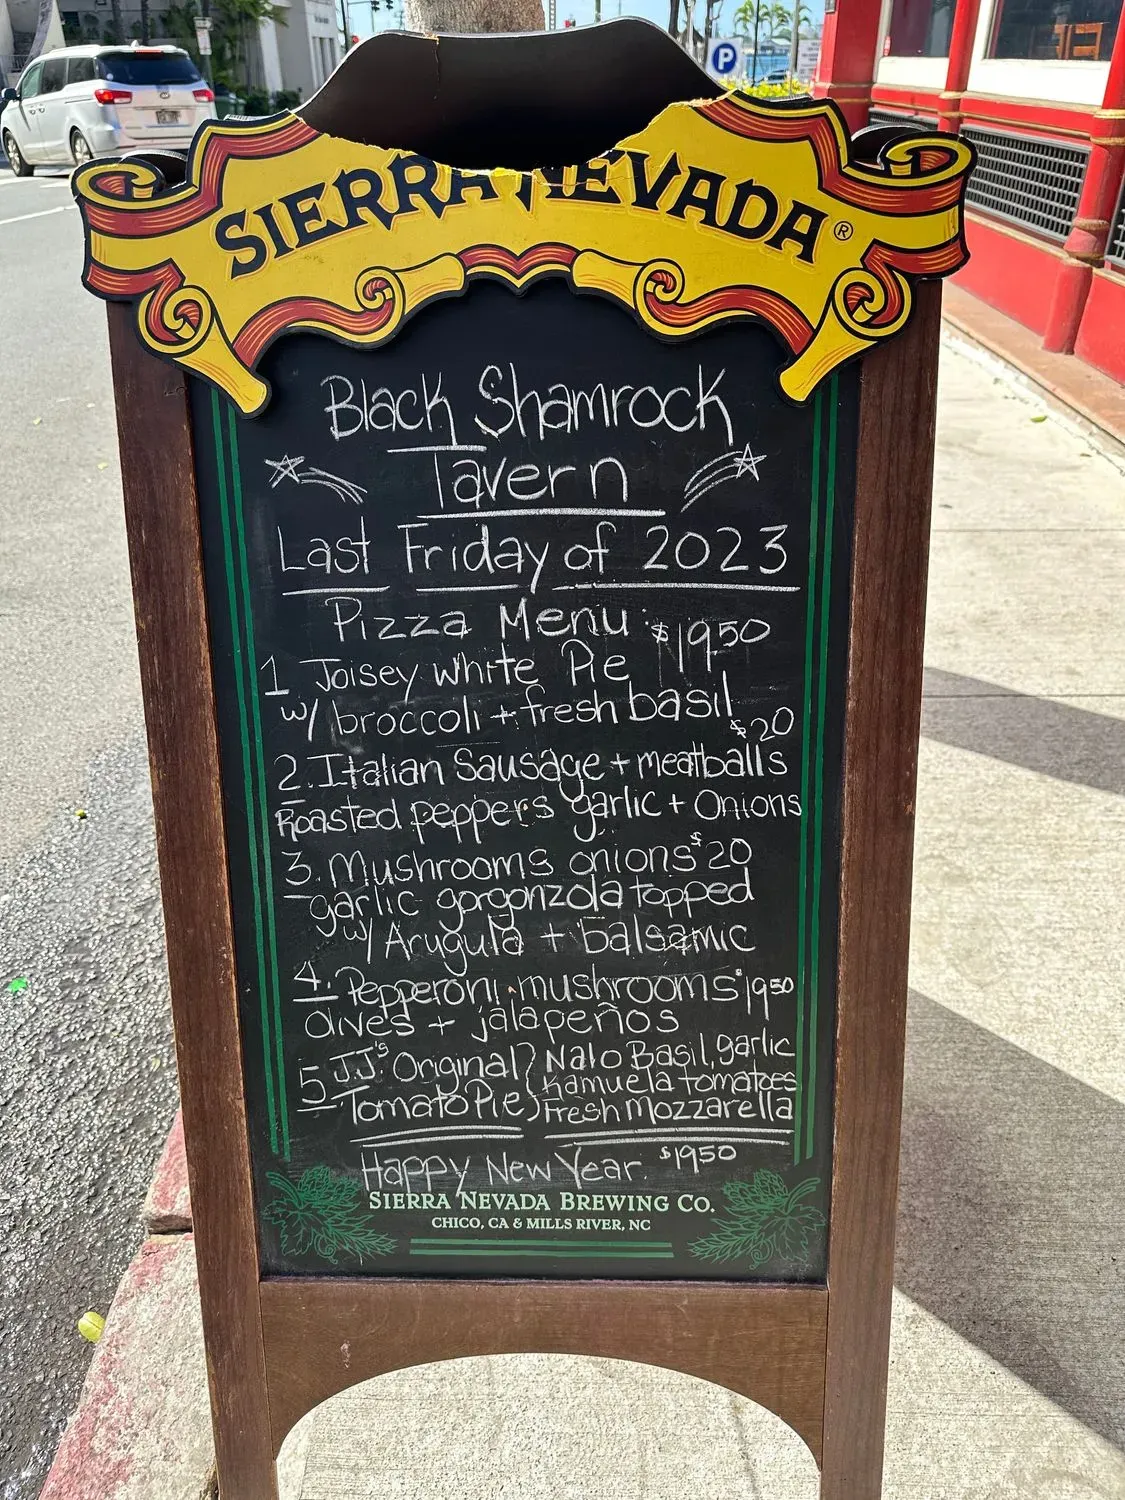 P
SIERRA NEVADA®
Black Shamrock
Tavern
Last Friday of 2023
Pizza Menu: $19.50
1 Joisey White Pie
w/ broccoli + fresh basil
$20
2. Italian Sausage + meatballs
Roasted peppers garlic + Onions
3. Mushrooms onions $20
garlic gorgonzola topped
w/ Arugula + balsamic
4. Pepperoni mushrooms $19.50
Olives + jalapeños
5 JJ's Original Tomato Pie
Nalo Basil, garlic
Kamuela tomatoes
Fresh Mozzarella
Happy New Year. $19.50
SIERRA NEVADA BREWING CO.
CHICO, CA & MILLS RIVER, NC